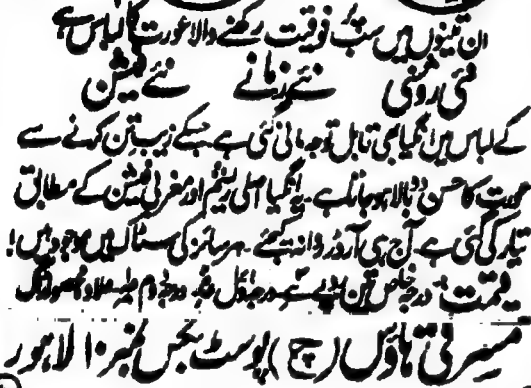 ان تینوں میں سب پر فوقیت رکھنے والا عورت کا لباس ہے
نئی روشنی نئے زمانے نئے فیشن
کے لباس میں انگیا بھی قابل توجہ مانی گئی ہے جسکے زیب تن کرنے سے
عورت کا حسن دوبالا ہو جاتا ہے۔ یہ انگیا اصلی ریشم اور مغربی فیشن کے مطابق
تیار کی گئی ہے۔ آج ہی آرڈر روانہ کیجئے۔ ہر سائز کی سٹاک میں موجود ہیں!
قیمت درجہ خاص تین روپے درجہ اول درجہ دوم علاوہ محصولڈاک
مسرتی ہاؤس (ج) پوسٹ بکس نمبر ۱۰ لاہور